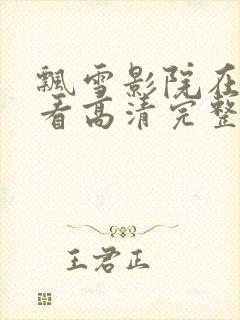 飘雪影院在
看高清完整
王君正